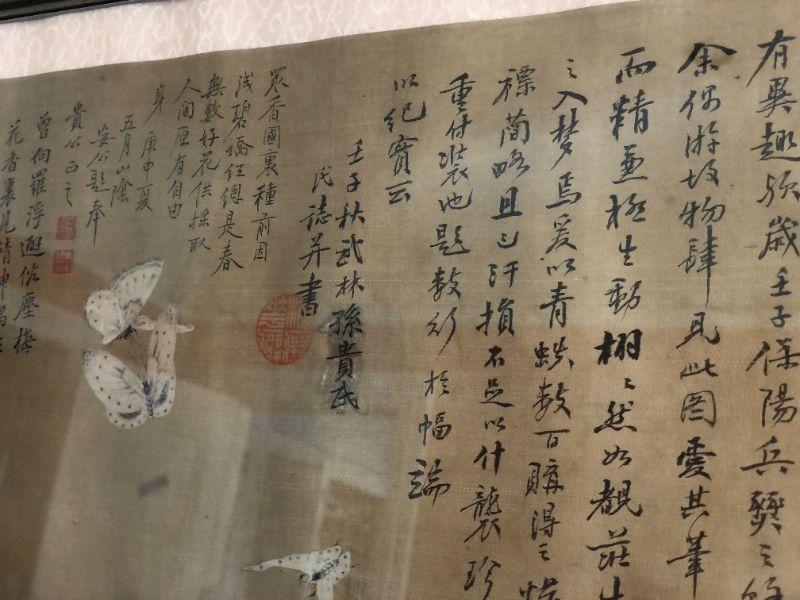 有異趣歲壬子保陽兵燹之
余偶游故物肆見此圖愛其筆
而精兼極生動栩〻然如覩莊生
之入夢焉爰以青蚨數百購得之惜
褾簡略且已汙損不足以什襲珍
重付裝池題數行於幅端
以紀實云
壬子秋武林孫貴民
誌并書
眾香國裏種前因
淺碧嬌紅總是春
無數好花供採取
人間原有自由
身 庚申夏
五月山陰
安公題奉
貴公正之
曾向羅浮塵梅
花香裏見精神